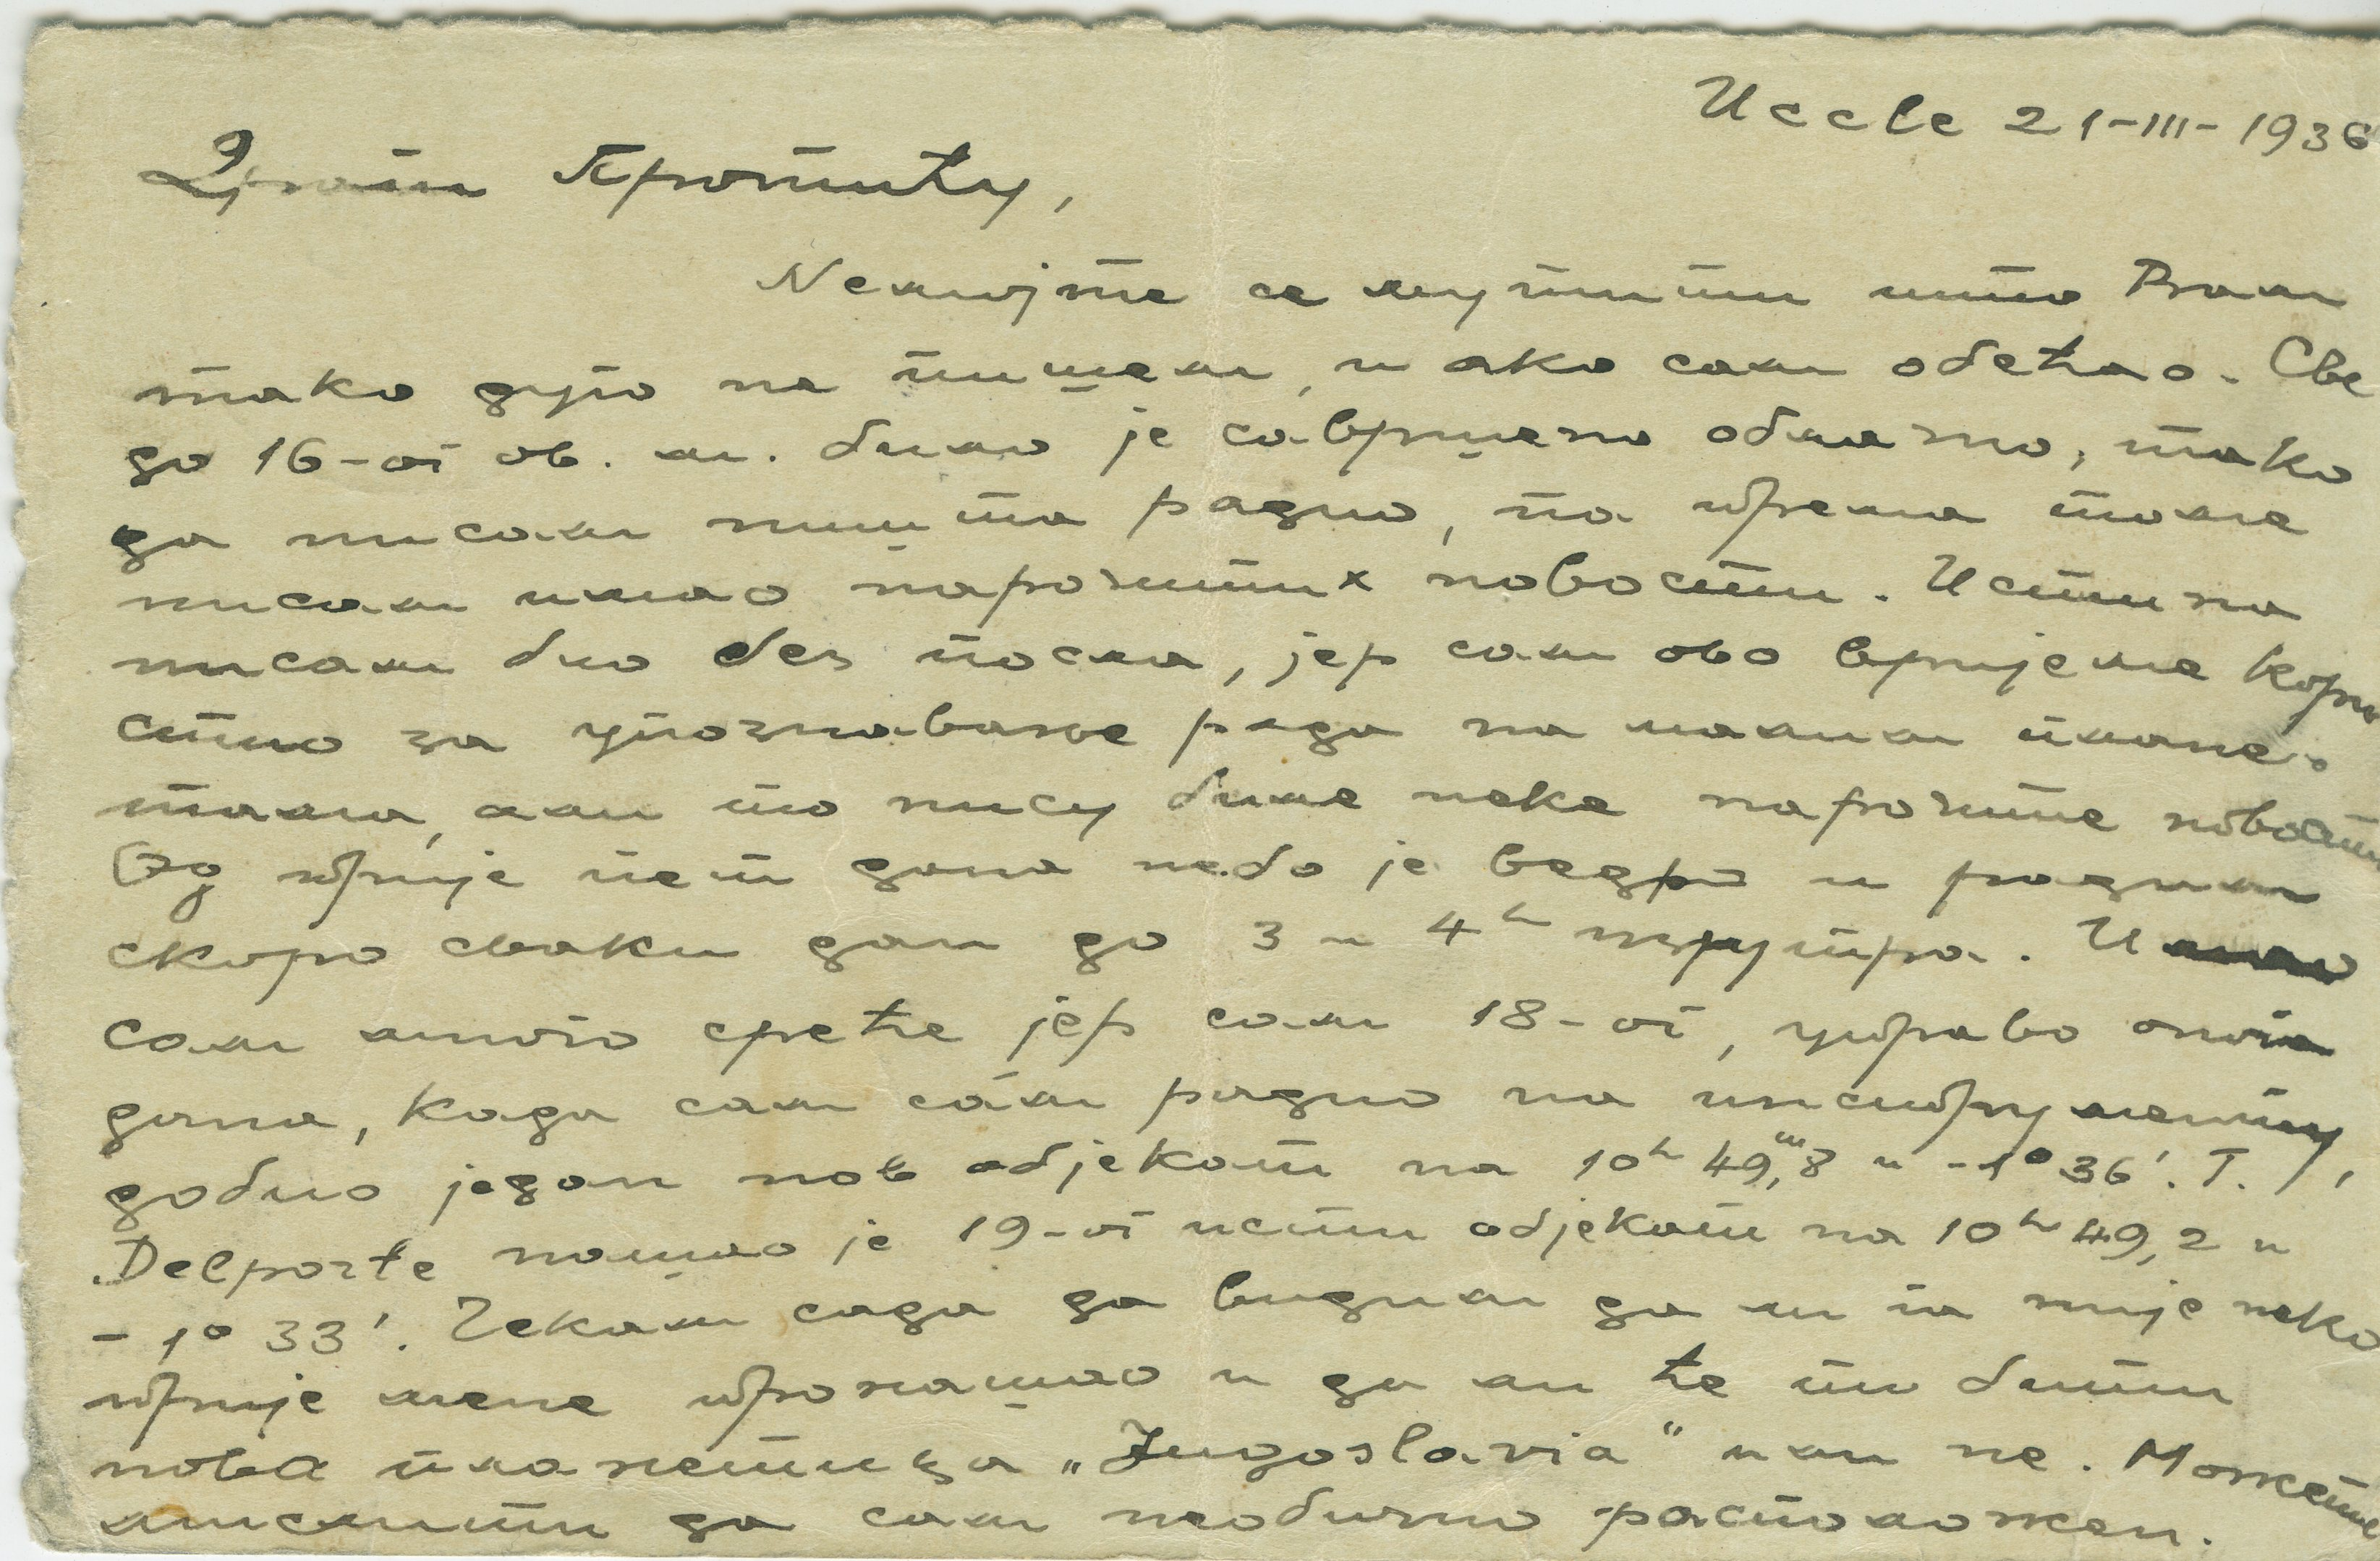 Uccle 21-III-1936
Драги Протићу,
Немојте се љутити што Вам
тако дуго не пишем, и ако сам обећао. Све
до 16-ог ов. м. било је савршено облачно, тако
да нисам ништа радио, па према томе
нисам имао нарочитих новости. Истина
нисам био без посла, јер сам ово вријеме кори
стио за упознавање рада на малим плане-
тама, али то нису биле неке нарочите новости.
Од прије пет дана небо је ведро и радим
скоро сваки дан до 3 и 4h изјутра. Имао
сам много среће јер сам 18-ог, управо онога
дана, када сам сáм радио на инструменту,
добио један нов објекат на 10h 49,m8 и -1° 36'. Г.
Delporte нашао је 19-ог исти објекат на 10h 49,2 и
- 1° 33'. Чекам сада да видим да ли га није неко
прије мене пронашао и да ли ће то бити
нова планетица „Jugoslavia“ или не. Можете
мислити да сам необично расположен.